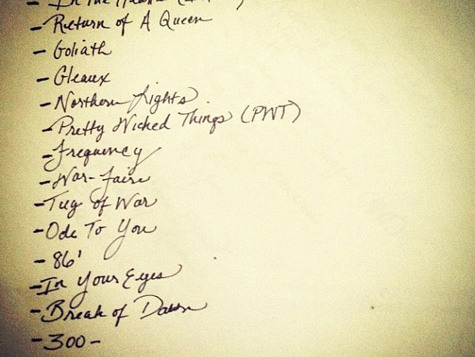 - Return of A Queen
- Goliath
- Gleaux
- Northern Lights
- Pretty Wicked Things (PWT)
- Frequency
- War-Faire
- Tug of War
- Ode To You
- 86'
- In Your Eyes
- Break of Dawn
- 300 -